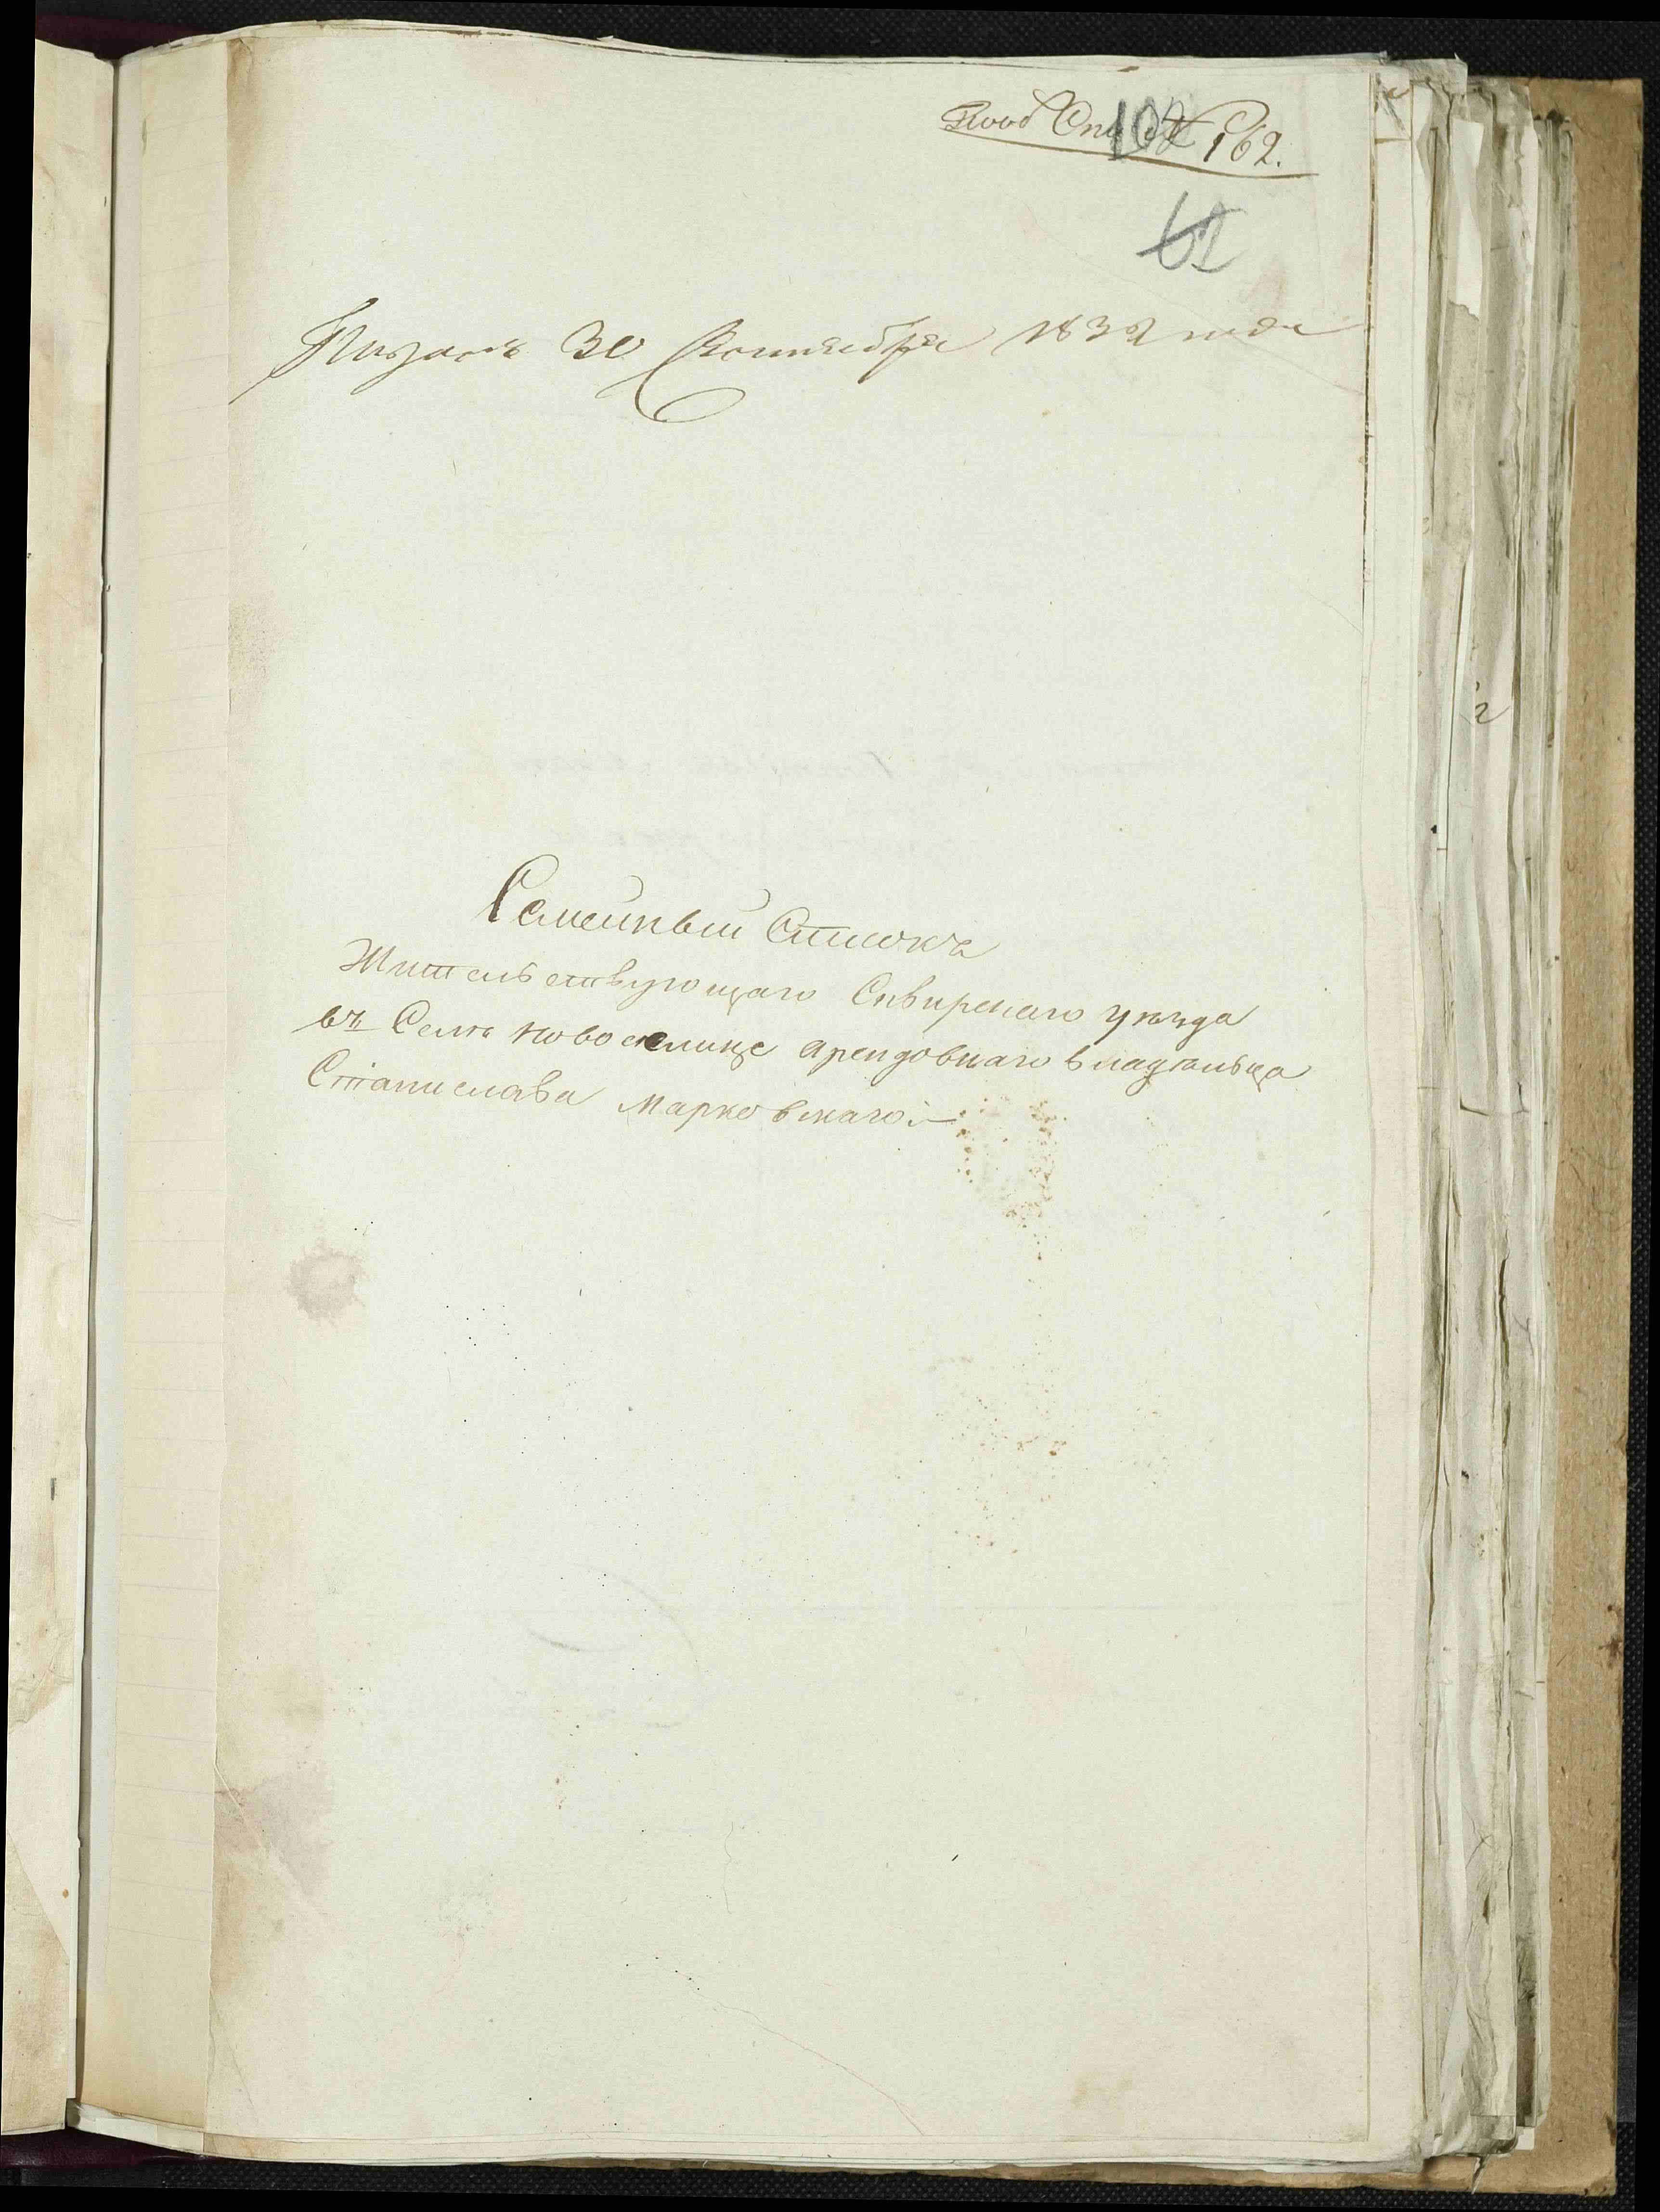 162.
30 Сентября 1832 года
Семейный Списокъ
Жительствующаго Сквирскаго уѣзда
въ Селѣ Новоселице арендовнаго владѣльца
Станислава Марковскаго